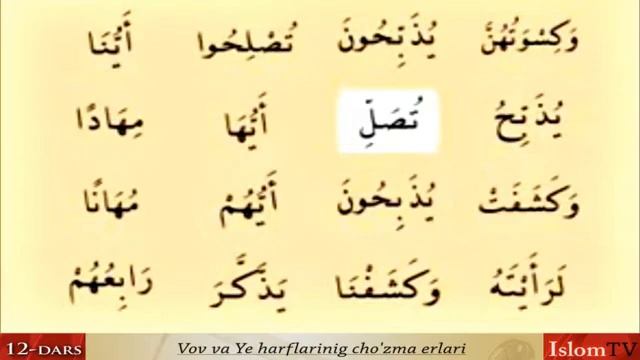 وَكِسْوَتُهُنَّ يُذَبِّحُونَ تُصْلِحُوا أَيُّنَا
يُذَبِّحُ تُصَلِّ أَيُّهَا مِهَادًا
وَكَشَفَتْ يُذَبِحُونَ أَيُّهُمْ مُهَانًا
لَرَأَيْتَهُ وَكَشَفْنَا يَذَّكَّرَ رَابِعُهُمْ
12-DARS Vov va Ye harflarinig cho'zma erlari IslomTV